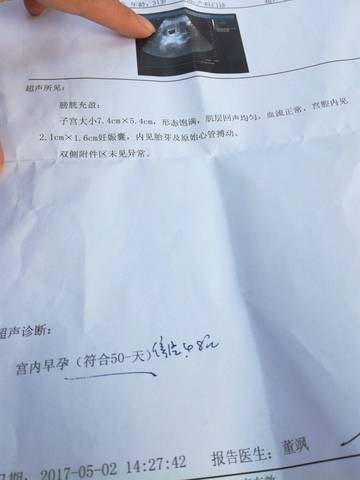 年龄: 31岁
超声所见:
膀胱充盈:
子宫大小7.4cm×5.4cm, 形态饱满, 肌层回声均匀, 血流正常, 宫腔内见
2.1cm×1.6cm妊娠囊, 内见胎芽及原始心管搏动。
双侧附件区未见异常。
超声诊断:
宫内早孕 (符合50-天)
日期: 2017-05-02 14:27:42 报告医生: 董飒